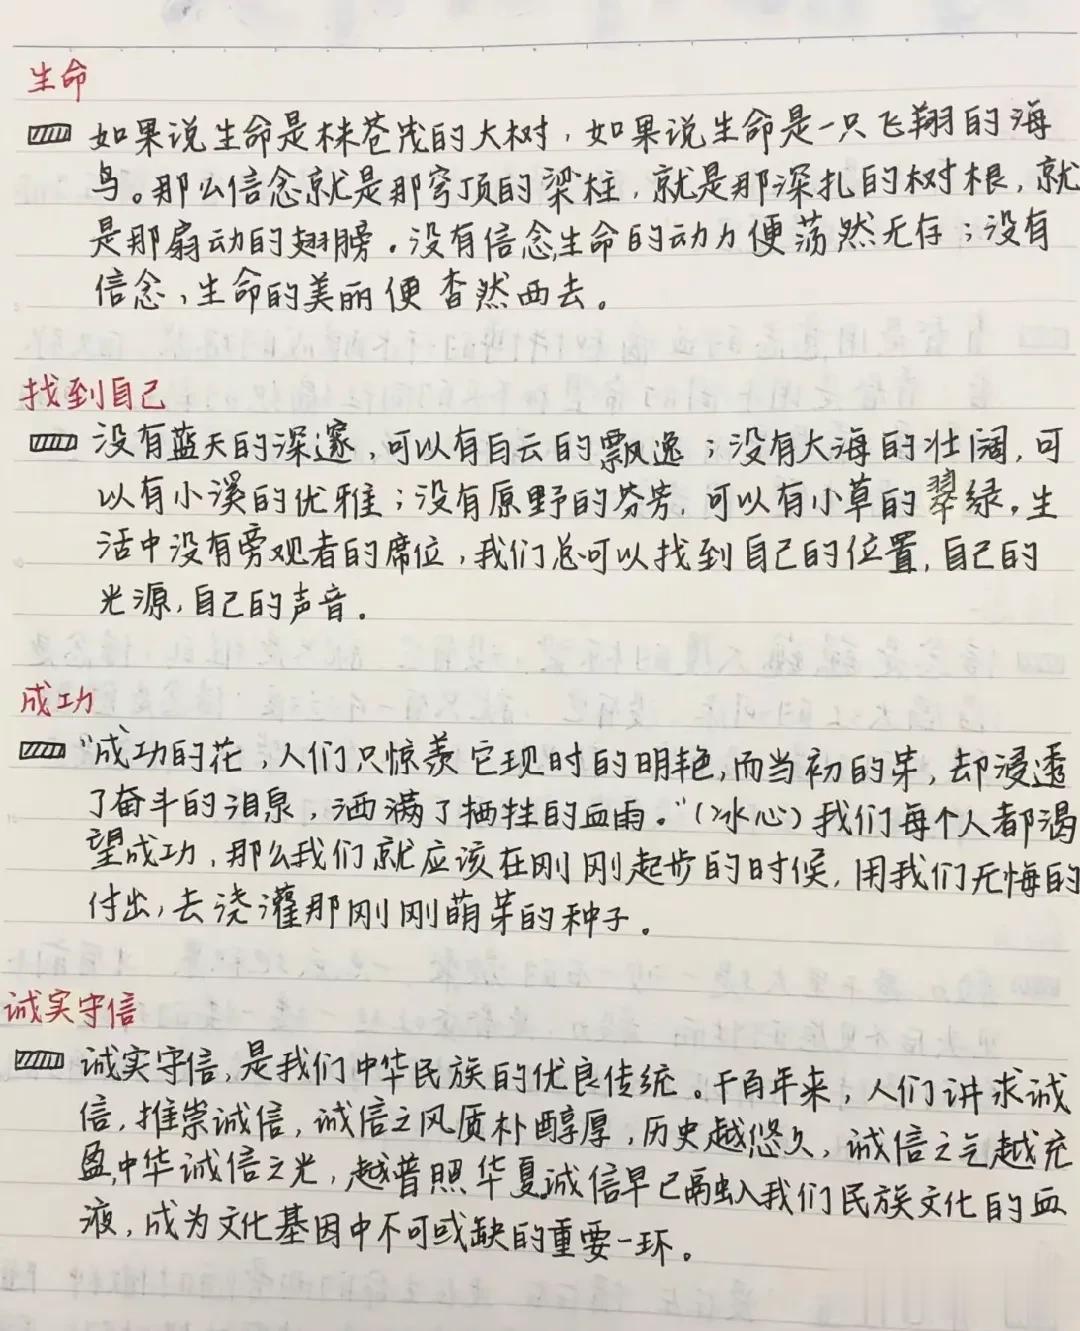 生命
如果说生命是株苍茂的大树，如果说生命是一只飞翔的海
鸟。那么信念就是那穹顶的梁柱，就是那深扎的树根，就
是那扇动的翅膀。没有信念,生命的动力便荡然无存；没有
信念，生命的美丽便杳然西去。
找到自己
没有蓝天的深邃，可以有白云的飘逸；没有大海的壮阔，可
以有小溪的优雅；没有原野的芬芳，可以有小草的翠绿。生
活中没有旁观者的席位，我们总可以找到自己的位置，自己的
光源，自己的声音。
成功
“成功的花，人们只惊羡它现时的明艳，而当初的芽，却浸透
了奋斗的泪泉，洒满了牺牲的血雨。”（冰心）我们每个人都渴
望成功，那么我们就应该在刚刚起步的时候，用我们无悔的
付出，去浇灌那刚刚萌芽的种子。
诚实守信
诚实守信，是我们中华民族的优良传统。千百年来，人们讲求诚
信，推崇诚信，诚信之风质朴醇厚，历史越悠久，诚信之气越充
盈,中华诚信之光，越普照华夏,诚信早已融入我们民族文化的血
液，成为文化基因中不可或缺的重要一环。